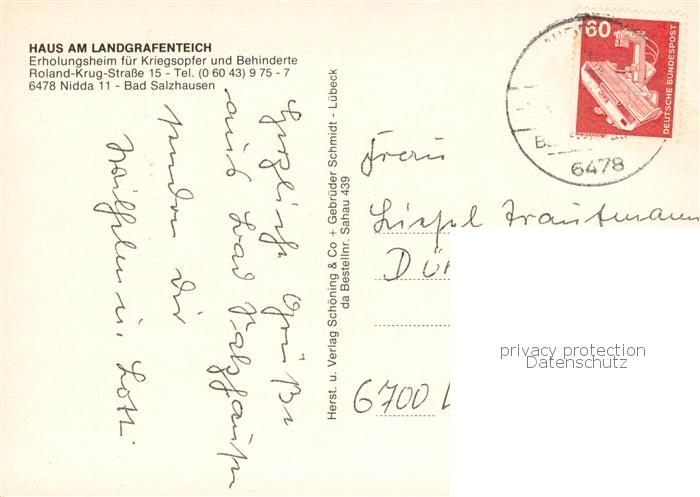 HAUS AM LANDGRAFENTEICH
Erholungsheim für Kriegsopfer und Behinderte
Roland-Krug-Straße 15 - Tel. (0 60 43) 9 75 - 7
6478 Nidda 11 - Bad Salzhausen
Herzliche Grüße
aus Bad Salzhausen
senden Dir
Wilhelm u. Lotti
Herst. u. Verlag Schöning & Co + Gebrüder Schmidt - Lübeck
da Bestellnr. Sahau 439
60
DEUTSCHE BUNDESPOST
6478
Frau
Liesel Trautmann
DÜ
6700 L
privacy protection
Datenschutz